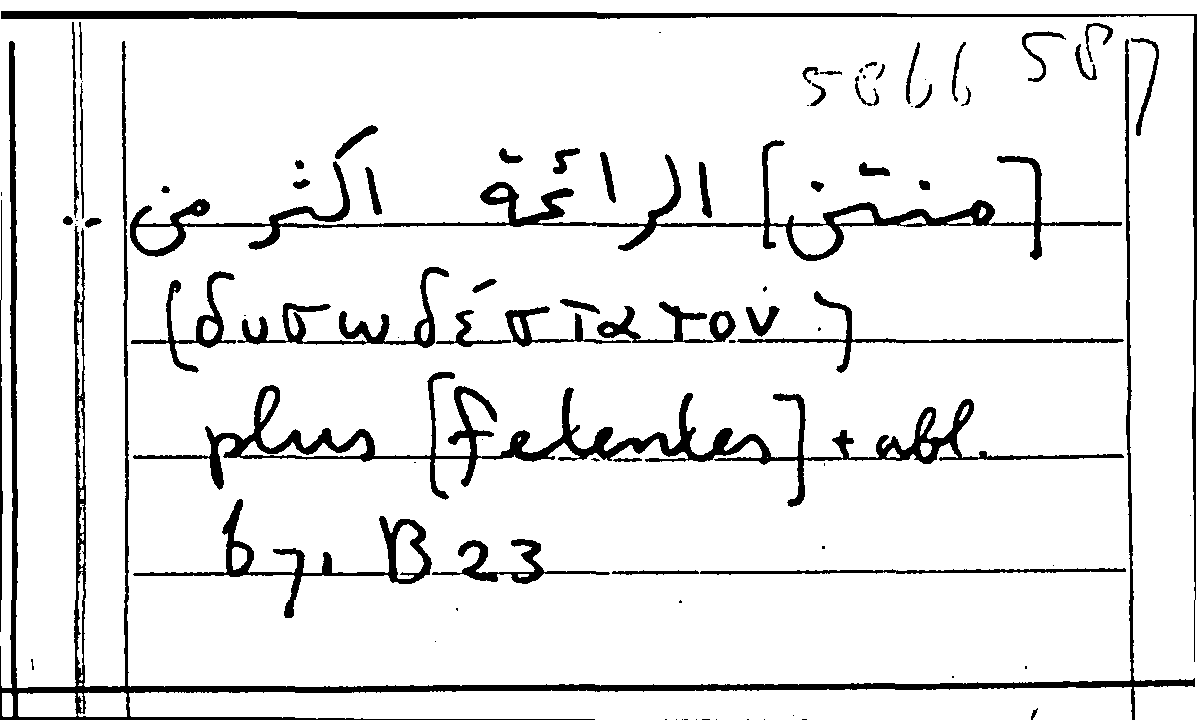 5866 587
[منتن] الرائحة اكثر من -·
(δυσωδέστατον)
plus [fetentes] + abl.
671 B 23